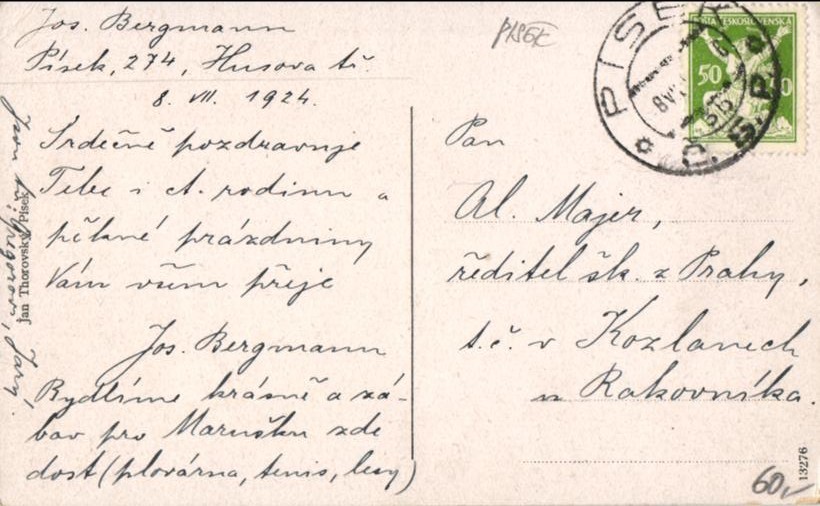 Jos. Bergmann
Písek, 274, Husova tř.
8. VII. 1924.
Srdečně pozdravuje
Tebe i ct. rodinu a
pěkné prázdniny
Vám všem přeje
Jos. Bergmann
Bydlíme krásně a zá-
bav pro Marušku zde
dost (plovárna, tenis, lesy)
Jan Thorovský, Písek
PISEK
PISEK
8 VII
Č.S.P.
POŠTA ČESKOSLOVENSKÁ
50
Pan
Al. Majer,
ředitel šk. z Prahy,
t. č. v Kozlanech
u Rakovníka.
13276
60,-